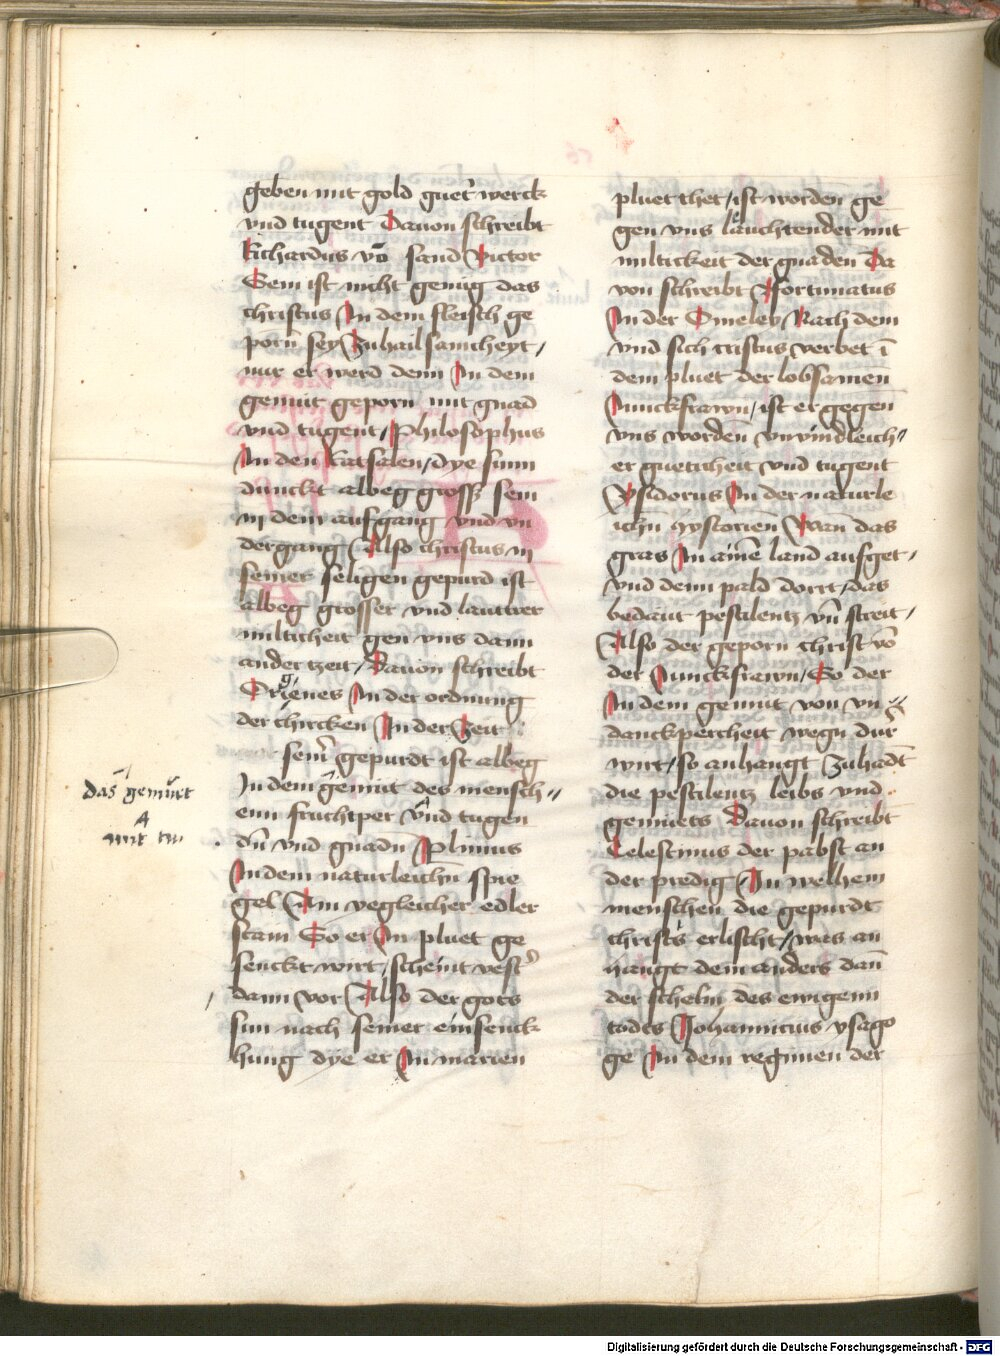 geben mit gold guet' werck
vnd tugent Dauon schreibt
Richardus vō sand Victor
Dem ist nicht genug das
christus In dem fleisch ge
porn sey Zuhailsamcheyt /
nur er werd denn In dem
gemut geporn mit gnad
vnd tugent / Philosophus
In den katsalen / dye sunn
dunckt albeg gross sein
in dem aufgang vnd vn
dergang Also christus in
seiner seligen gepurd ist
albeg grosser vnd lauttrer
milticheit gen vns dann
ander tzeit / Dauon schreibt
Origenes In der ordnung
der chircken In der Zeit
sein' gepurdt ist albeg
In dem gemut des mensch〃
ein fruchtper vnd tugen
dn̄ vnd gnadn Plinius
In dem naturleichn̄ spie
gel Ain yegleicher edler
stain So er In pluet ge
senckt wirt / scheint vest'
dann vor Also der gots
sun nach seiner einsenck
hung dye er In marien
das gemuet
mit tu
pluet thet / ist worden ge
gen vns läuchtender mit
miltickeit der gnaden Da
von schreibt Fortunatus
In der Omeley Nach dem
vnd sich cristus verbet ī
dem pluet der lobsamen
Junckfrawn / ist er gegen
vns worden vnvindleich〃
er guetticheit vnd tugent
Ysidorus In der naturle
ichn̄ hystorien Wan̄ das
gras In aine land aufget /
vnd denn pald dorrt / das
bedäut pestilentz vn̄ streit /
Also der geporn christ vō
der Junckfrawn / So der
In dem gemut von vn〃
danckpercheit wegn dur'
wirt / so anhangt Zuhādt
die pestilentz leibs vnd
gemuets Dauon schreibt
Celestinus der pabst an
der predig In welhem
menschen die gepurdt
christs erlischt / was an
hangt dem anders dan̄
der schelm des ewigenn
todts Johannicius ysago
ge In dem regimen der
Digitalisierung gefördert durch die Deutsche Forschungsgemeinschaft - DFG